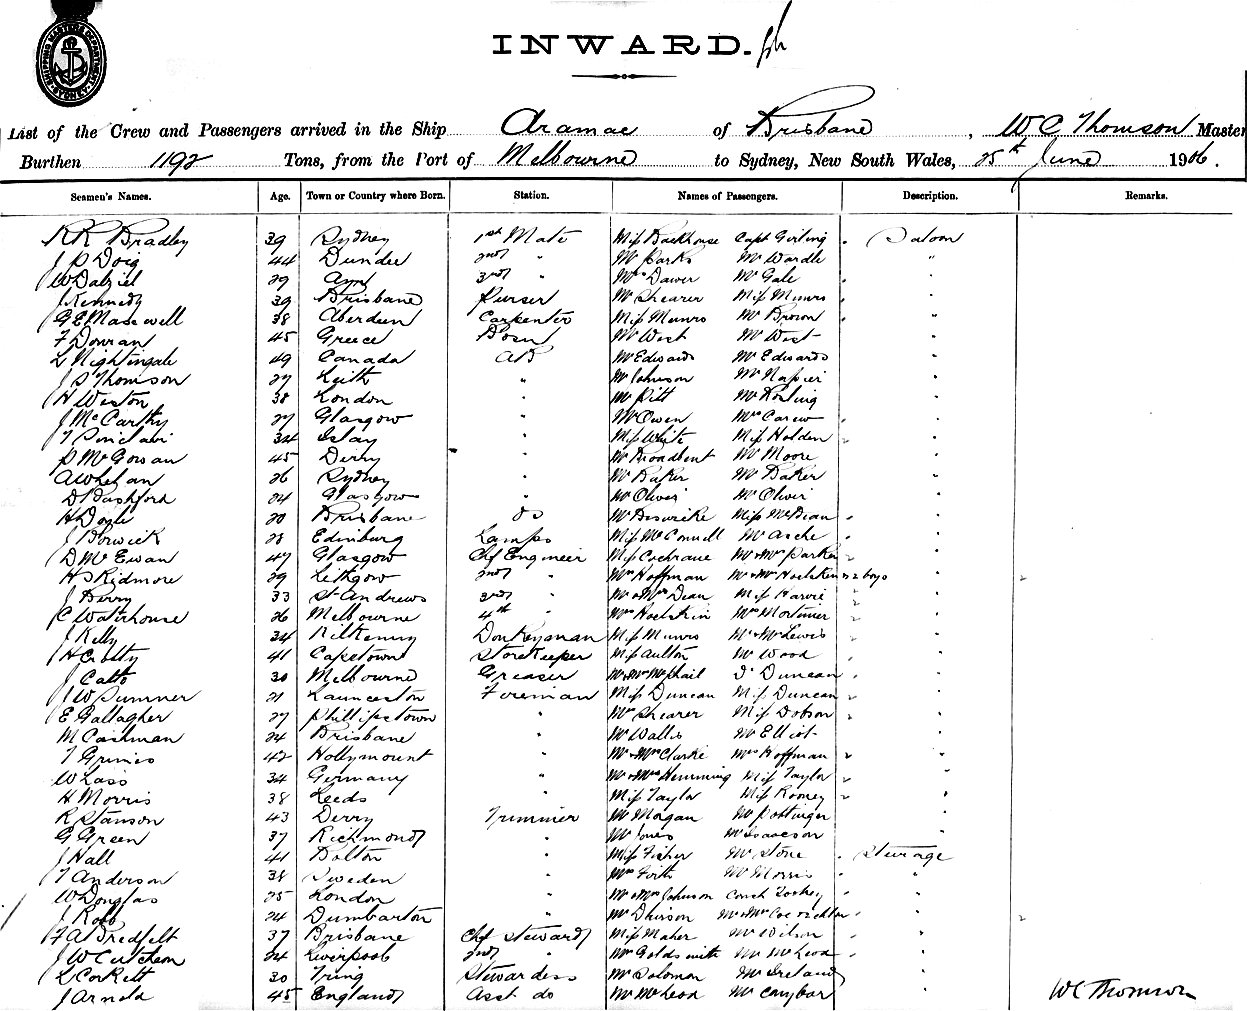 SHIPPING MASTERS DEPARTMENT SYDNEY
INWARD.
List of the Crew and Passengers arrived in the Ship Aramac of Brisbane, W C Thomson Master
Burthen 1192 Tons, from the Port of Melbourne to Sydney, New South Wales, 25th June 1906.
Seamen's Names. Age. Town or Country where Born. Station. Names of Passengers. Description. Remarks.
R R Bradley 39 Sydney 1st Mate Miss Backhouse Capt Girling Saloon
J P Doig 44 Dundee 2nd " Mr Parks Mr Wardle "
W Dalziel 29 Ayr 3rd " Mrs Dawer Mr Gale "
J Kennedy 39 Brisbane Purser Mr Shearer Miss Munro "
G E Maxwell 38 Aberdeen Carpenter Miss Munro Mr Brown "
45 Greece Bosn Mr West Mr West "
L Nightingale 49 Canada AB Mr Edwards Mr Edwards "
J S Thomson 27 Keith " Mr Johnson Mr Napier "
H Weston 38 London " Mr Pitt "
J McCarthy 27 Glasgow " Mr Owen Mrs Carew "
T Sinclair 34 Islay " Miss White Miss Holden "
45 Derry " Mr Broadbent Mr Moore "
A Whelan 26 Sydney " Mr Baker Mr Baker "
D Bashford 24 Glasgow " Mr Oliver Mr Oliver "
H Doyle 20 Brisbane do Mr Beswicke Miss McBean "
J Borwick 28 Edinburg Lamps Miss McConnell Mr Asche "
D McEwan 47 Glasgow Chf Engineer Miss Cochrane Mr & Mrs Parker "
H Skidmore 29 Lithgow 2nd " Mrs Hoffman Mr & Mrs Hoelskin & 2 boys "
J Berry 33 St Andrews 3rd " Mr & Mrs Dean Miss Harvie "
C Waterhouse 26 Melbourne 4th " Mr Hoelskin Mrs Mortimer "
J Kelly 34 Kilkenny Donkeyman Miss Munro Mr & Mrs Lewis "
H Crotty 41 Capetown Storekeeper Miss Aulton Mr Wood "
J Catto 30 Melbourne Greaser Mr & Mrs McPhail Dr Duncan "
J W Sumner 21 Launceston Foreman Miss Duncan Miss Duncan "
E Gallagher 27 Phillipstown " Mr Shearer Miss Dobson "
M Cashman 24 Brisbane " Mr Wallis Mr Elliot "
T Grimes 42 Hollymount " Mr & Mrs Clarke Mrs Hoffman "
W Lass 34 Germany " Mr & Mrs Hemming Miss Taylor "
H Morris 38 Leeds " Miss Taylor Miss Rooney "
R Stanson 43 Derry Trimmer Mr Morgan Mr Pottinger "
G Green 37 Richmond " Mr Jones Mr Isaacson "
J Hall 41 Bolton " Miss Fisher Mr Stone Steerage
T Anderson 38 Sweden " Mrs Firth Mr Morris "
W Douglas 25 London " Mr & Mrs Johnson "
J Robb 24 Dumbarton " "
F A Bredfelt 37 Brisbane Chf Steward Miss Maher Mr Wilson "
J W Cutcheon 24 Liverpool 2nd " Mr Goldsmith Mr McLeod "
L Corkett 30 Tring Stewardess Mr Solomon Mr Ireland "
J Arnold 45 England Asst do Mr McLeod "
W C Thomson